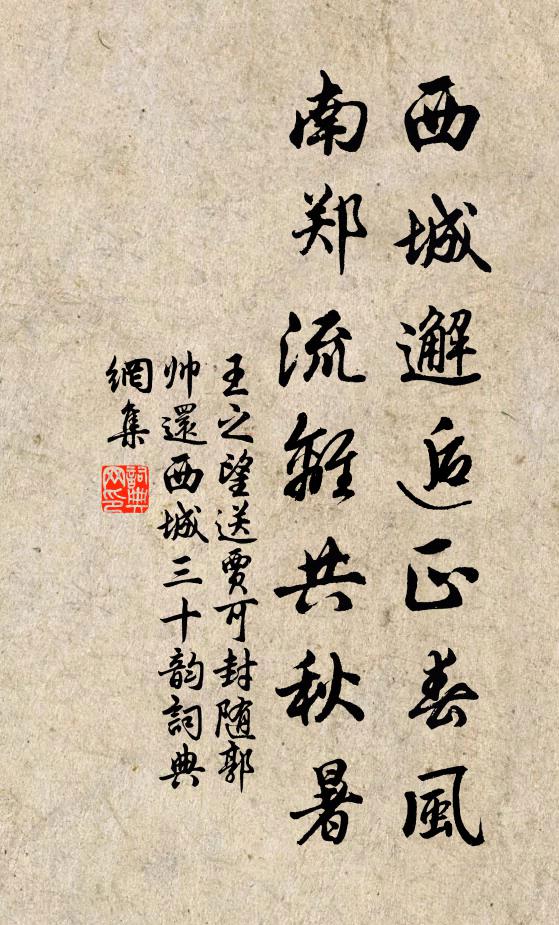 西城邂逅正春風
南郑流離共秋暑
王之望送賈可封随郭
帅還西城三十韵詞典
網集
詞典網印